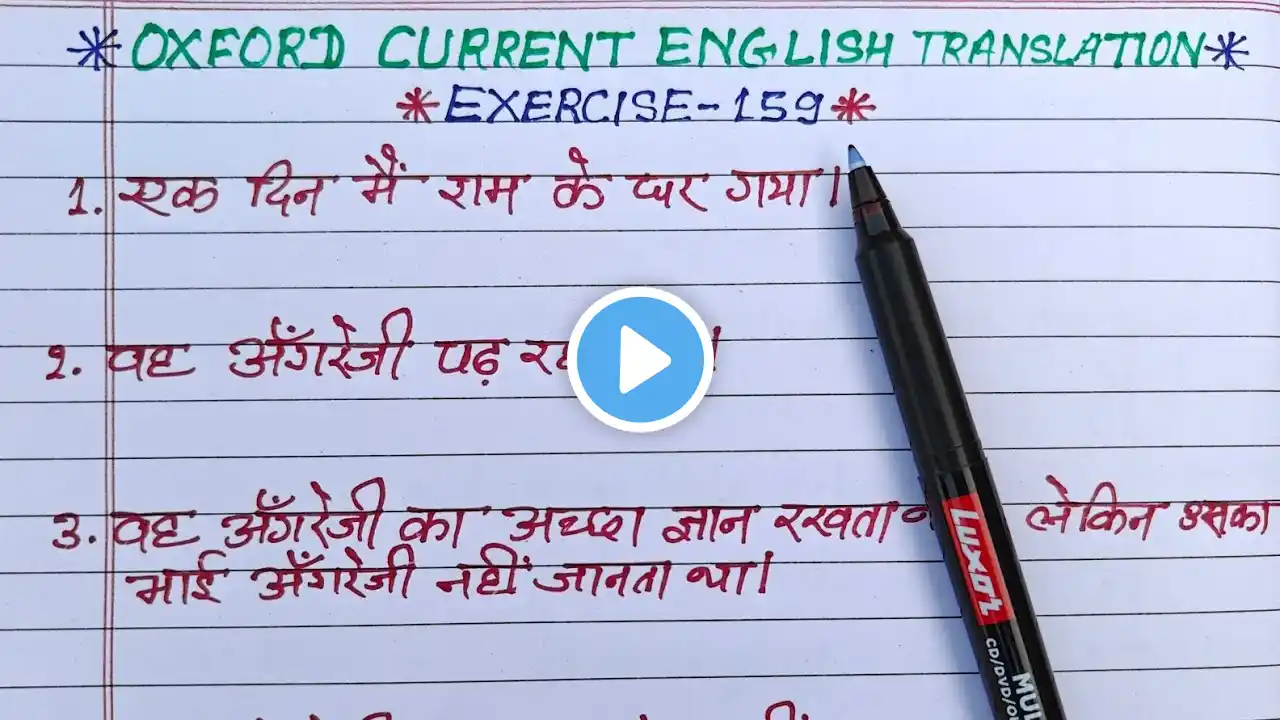 *OXFORD CURRENT ENGLISH TRANSLATION*
*EXERCISE-159*
1. एक दिन मैं राम के घर गया।
२. वह अँगरेजी पढ़
3. वह अँगरेजी का अच्छा ज्ञान रखता लेकिन उसका
भाई अँगरेजी नहीं जानता था।
LUXOR
CD/DVD/